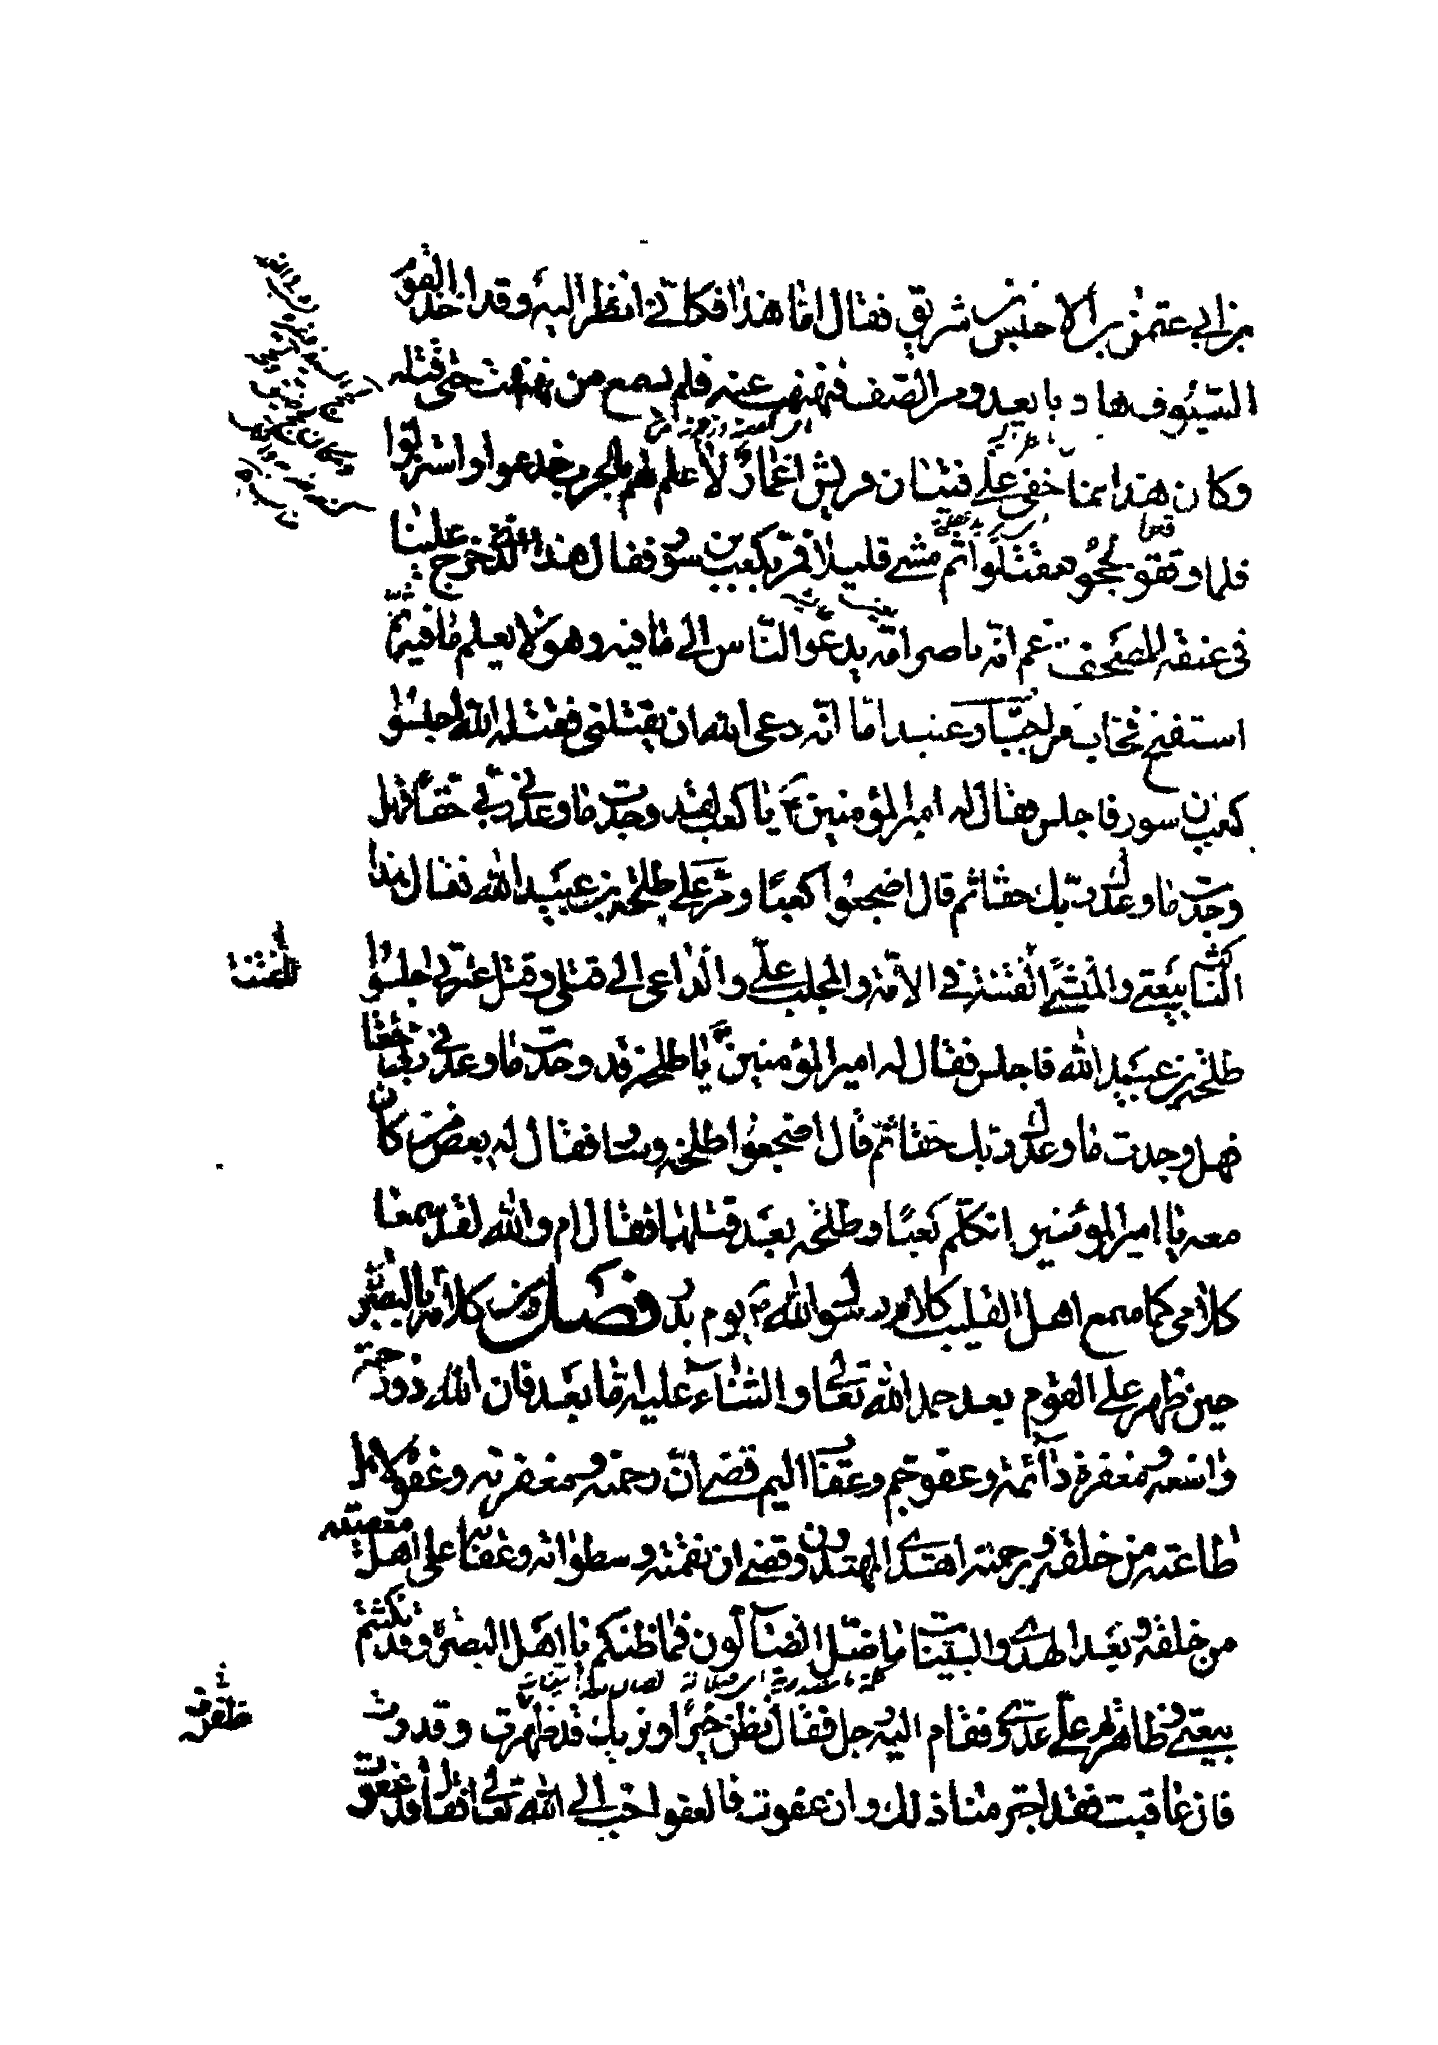 بن ابي عثمن بن الاخنس بن شريق فقال امّا هذا فكاني انظر اليه وقد اخذ القوم
السّيوف هاربا يعدو من الصّف فنهنهت عنه فلم يسمع من نهنهت حتى قتله
وكان هذا ممّا خفي علي فتيان قريش اغمار لا علم لهم بالحرب خدعوا واستزلّوا
فلما وقفوا لحجوا فقتلوا ثم مشى قليلا فمر بكعب بن سور فقال هذا الذي خرج علينا
في عنقه المصحف يزعم انّه ناصر امّه يدعو النّاس الى ما فيه وهو لا يعلم ما فيه ثمّ
استفتح فخاب كل جبّار عنيد اما انّه دعى الله ان يقتلني فقتله الله اجلسوا
كعب بن سور فاجلس فقال له امير المؤمنين ع يا كعب لقد وجدت ما وعدني ربّي حقّا فهل
وجدت ما وعدك ربّك حقّا ثم قال اضجعوا كعبًا ومرّ على طلحة بن عبيد الله فقال هذا
الناكث بيعتي والمنشئ الفتنة في الامّة والمجلب علي والدّاعي الى قتلي وقتل عترتي اجلسوا
طلحة بن عبيد الله فاجلس فقال له امير المؤمنين ع يا طلحة قد وجدت ما وعدني ربّي حقا
فهل وجدت ما وعدك ربّك حقا ثم قال اضجعوا طلحة وسار فقال له بعض من كان
معه يا امير المؤمنين اتكلّم كعبًا وطلحة بعد قتلهما فقال ام والله لقد سمعا
كلامي كما سمع اهل القليب كلام رسول الله ص يوم بدر فصل ومن كلامه بالبصرة
حين ظهر على القوم بعد حمد الله تعالى والثّناء عليه امّا بعد فان الله ذو رحمة
واسعة ومغفرة دائمة وعفو جم وعقاب اليم قضى انّ رحمته ومغفرته وعفوه لاهل
طاعته من خلقه وبرحمته اهتدى المهتدون وقضى ان نقمته وسطواته وعقابه على اهل معصيته
من خلقه وبعد الهدى والبيّنات ما ضلّ الضالّون فما ظنكم يا اهل البصرة وقد نكثتم
بيعتي وظاهرتم علي عدوّي فقام اليه رجل فقال نظن خيرًا ونريك قد ظهرت وقدرت
فان عاقبت فقد اجترمنا ذلك وان عفوت فالعفو احب الى الله تعالى فقال قد عفوت